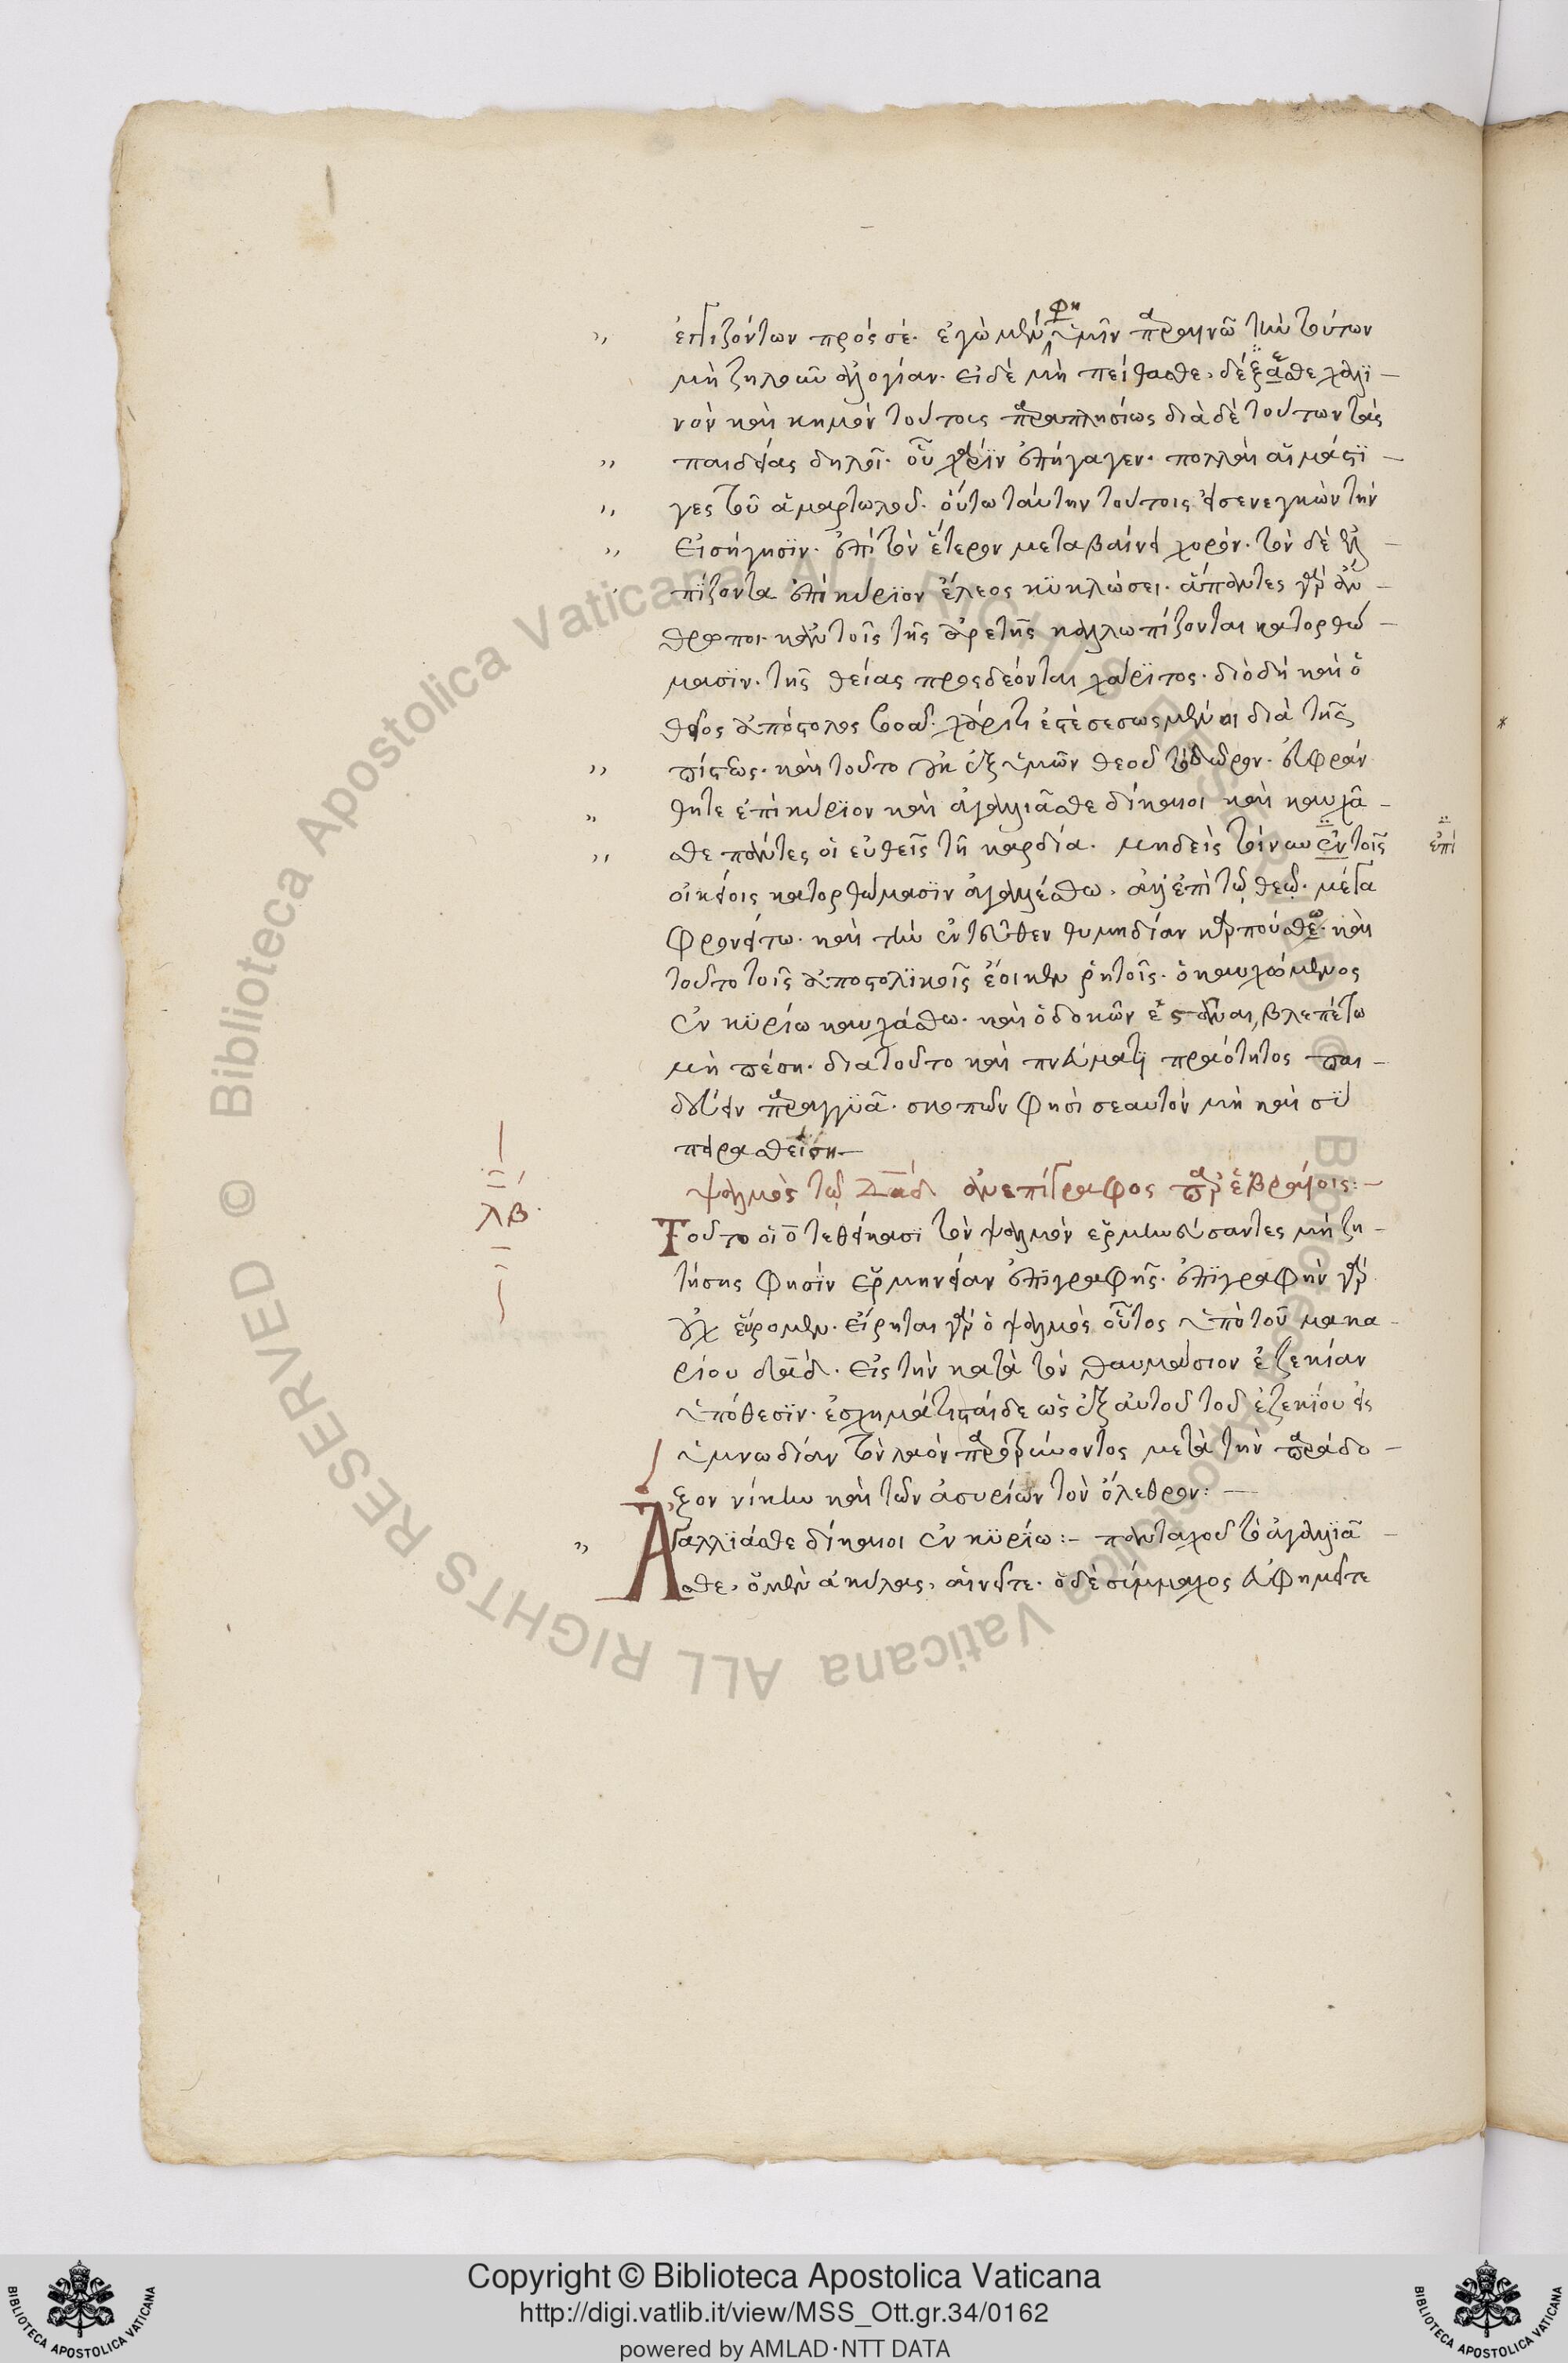 ἐγγιζόντων πρός σέ. ἐγὼ μὲν φη ὑμῖν παραινῶ τὴν τούτων
μὴ ζηλοῦν ἀλογίαν. εἰ δὲ μὴ πείθασθε, δέξασθε χαλι –
νὸν καὶ κημὸν τούτοις παραπλησίως διὰ δὲ τούτων τὰς
παιδείας δηλοῖ. οὗ χάριν ἐπήγαγεν. πολλαὶ αἱ μάστι –
γες τοῦ ἁμαρτωλοῦ. οὕτω ταύτην τούτοις εἰσενεγκὼν τὴν
εἰσήγησϊν. ἐπὶ τὸν ἕτερον μεταβαίνει χορόν. τὸν δὲ ἐλ –
πίζοντα ἐπὶ κύριον ἔλεος κϋκλώσει. ἅπαντες γὰρ ἄν –
θρωποι. κἂν τοῖς τῆς ἀρετῆς καλλωπίζονται κατορθώ –
μασϊν. τῆς θείας προσδέονται χάρϊτος. διὸ δὴ καὶ ὁ
θεῖος ἀπόστολος βοᾶ. χάριτι ἐστὲ σεσωσμένοι διὰ τῆς
πίστεως. καὶ τοῦτο οὐκ ἐξ ὑμῶν θεοῦ τὸ δῶρον. εὐφράν
θητε ἐπὶ κύριον καὶ ἀγαλλιᾶσθε δίκαιοι καὶ καυχᾶ –
σθε πάντες οἱ εὐθεῖς τῆ καρδία. μηδεὶς τοίνυν ἐν τοῖς ἐπὶ
οἰκείοις κατορθώμασϊν ἀγαλλέσθω. ἀλλ' ἐπὶ τῷ θεῷ. μέγα
φρονείτω. καὶ τὴν ἐντεῦθεν θυμηδίαν καρπούσθω. καὶ
τοῦτο τοῖς ἀποστολϊκοῖς ἔοικεν ῥητοῖς. ὁ καυχώμενος
ἐν κϋρίω καυχάσθω. καὶ ὁ δοκῶν ἑστάναι, βλεπέτω
μὴ πέση. διατοῦτο καὶ πνεύματϊ πραότητος παι –
δεύειν παρεγγυᾶ. σκοπῶν φησὶ σεαυτὸν μὴ καὶ σὺ
πειρασθείση –
ψαλμὸς τῷ δαδ ἀνεπίγραφος παρ' ἑβραίοις: –
λβ.
Τοῦτο οἱ ο τεθείκασϊ τὸν ψαλμὸν ἑρμηνεύσαντες μὴ ζη –
τήσης φησϊν ἑρμηνείαν ἐπϊγραφῆς. ἐπϊγραφὴν γὰρ
οὐχ εὕρομεν. εἴρηται γὰρ ὁ ψαλμὸς οὗτος ὑπὸ τοῦ μακα –
ρίου δαδ. εἰς τὴν κατὰ τὸν θαυμάσιον ἐζεκίαν
ὑπόθεσϊν. ἐσχημάτισται δε ὡς ἐξ αὐτοῦ τοῦ ἐζεκίου εἰς
ὑμνωδίαν τὸν λαὸν προτρέποντος μετὰ τὴν παράδο –
ξον νίκην καὶ τῶν ἀσυρίων τὸν ὄλεθρον: –
Ἀγαλλϊᾶσθε δίκαιοι ἐν κϋρίω: – πανταχοῦ τὸ ἀγαλλϊᾶ –
σθε, ὁ μὲν ἀκύλας, αἰνεῖτε. ὁ δὲ σύμμαχος εὐφημεῖτε
Copyright © Biblioteca Apostolica Vaticana
http://digi.vatlib.it/view/MSS_Ott.gr.34/0162
powered by AMLAD·NTT DATA
BIBLIOTECA APOSTOLICA VATICANA
BIBLIOTECA APOSTOLICA VATICANA
© Biblioteca Apostolica Vaticana ALL RIGHTS RESERVED © Biblioteca Apostolica Vaticana ALL RIGHTS RESERVED